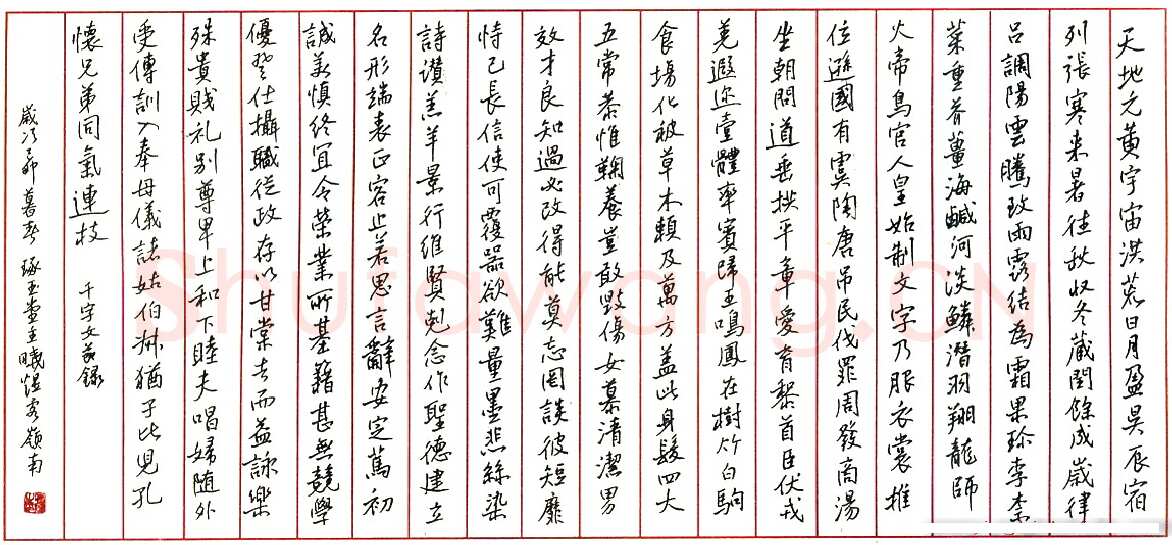 天地元黃宇宙洪荒日月盈昃辰宿
列張寒来暑往秋收冬藏閏餘成歲律
呂調陽雲騰致雨露結為霜果珍李柰
菜重芥薑海鹹河淡鱗潛羽翔龍師
火帝鳥官人皇始制文字乃服衣裳推
位遜國有虞陶唐吊民伐罪周發商湯
坐朝問道垂拱平章愛育黎首臣伏戎
羌遐迩壹體率賓歸王鳴鳳在樹竹白駒
食場化被草木賴及萬方盖此身髮四大
五常恭惟鞠養豈敢毀傷女慕清潔男
效才良知過必改得能莫忘罔談彼短靡
恃己長信使可覆器欲難量墨悲絲染
詩讚羔羊景行維賢剋念作聖德建立
名形端表正容止若思言辭安定篤初
誠美慎終宜令榮業所基籍甚無競學
優登仕攝職從政存以甘棠去而益詠樂
殊貴賤礼別尊卑上和下睦夫唱婦随外
受傳訓入奉母儀諸姑伯叔猶子比兒孔
懷兄弟同氣連枝 千字文節錄
歲次卯暮春 琢玉堂主煜客嶺南
Shufawang.CN